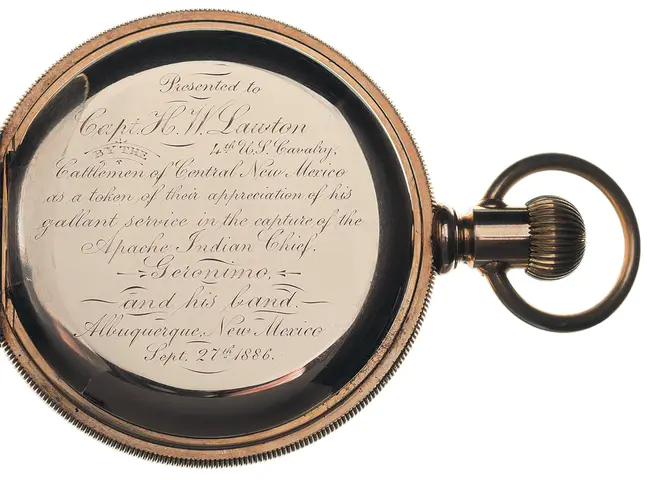 Presented to
Capt. H. W. Lawton
4th U.S. Cavalry.
BY THE
Cattlemen of Central New Mexico
as a token of their appreciation of his
gallant service in the capture of the
Apache Indian Chief.
Geronimo,
and his band.
Albuquerque, New Mexico
Sept. 27th 1886.